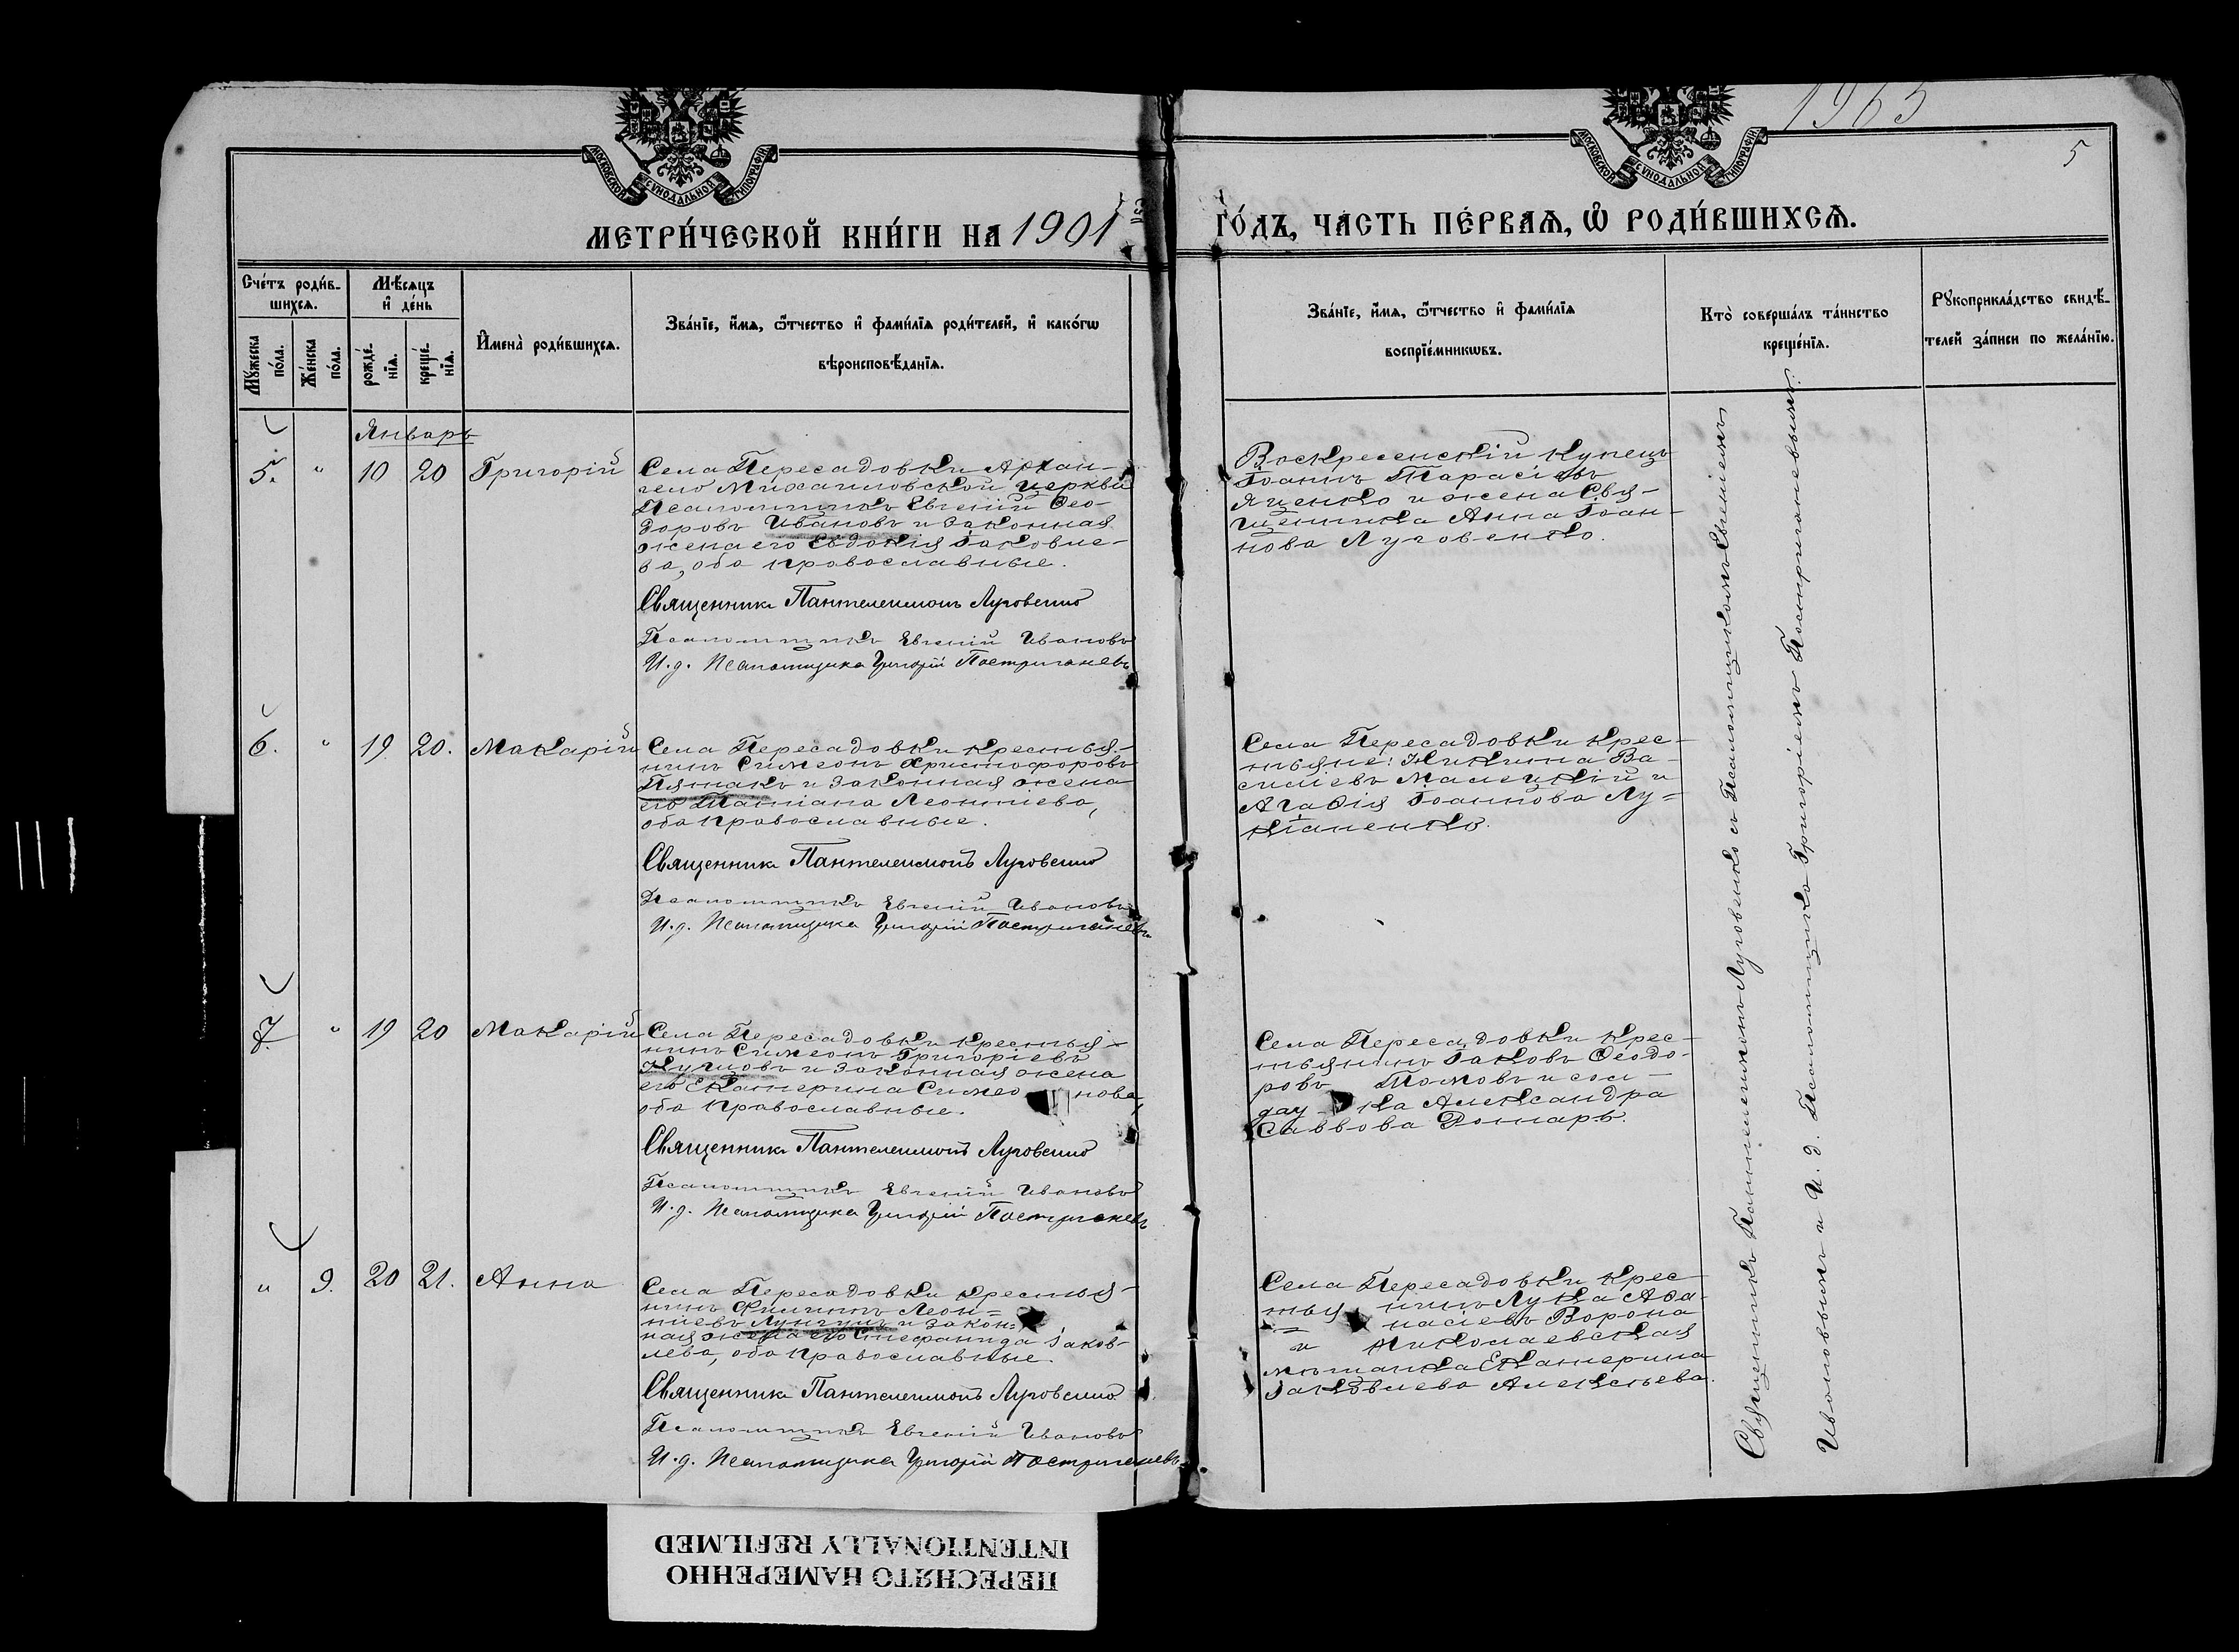 1963
5
МОСКОВСКОЙ СѴНОДАЛЬНОЙ ТИПОГРАФІИ
МОСКОВСКОЙ СѴНОДАЛЬНОЙ ТИПОГРАФІИ
МЕТРИ́ЧЕСКОЙ КНИ́ГИ НА 1901 ГО́ДЪ, ЧА́СТЬ ПЕ́РВАѦ, Ѡ РОДИ́ВШИХСѦ.
Сче́тъ роди́в-
шихсѧ.
Мꙋжеска по́ла.
Же́нска по́ла.
Мѣ́сѧцъ
и де́нь
рожде́-
нїѧ.
креще́-
нїѧ.
Имена̀ роди́вшихсѧ.
Зва́нїе, и́мѧ, ѻ́тчество и фами́лїѧ роди́телей, и како́гѡ
вѣроисповѣ́данїѧ.
Зва́нїе, и́мѧ, ѻ́тчество и фами́лїѧ
воспрїе́мникѡвъ.
Кто̀ соверша́лъ та́инство
креще́нїѧ.
Рꙋкоприкла́дство свидѣ́-
телей за́писи по жела́нїю.
Январь
5. " 10 20 Григорій
Села Пересадовки Архан-
гело Михаиловской церкви
Псаломщикъ Евгеній Ѳео-
доровъ Ивановъ и законная
жена его Евдокія Іаковле-
ва, оба православные.
Священникъ Пантелеимонъ Луговенко
Псаломщикъ Евгеній Ивановъ
И. д. Псаломщика Григорій Постригачевъ
Воскресенскій купецъ
Іоаннъ Тарасіевъ
Яценко и жена Свя-
щенника Анна Іоан-
нова Луговенко.
6. " 19 20. Макарій
Села Пересадовки крестья-
нинъ Симеонъ Христофоровъ
Пятакъ и законная жена
его Татіана Леонтіева,
оба православные.
Священникъ Пантелеимонъ Луговенко
Псаломщикъ Евгеній Ивановъ
И. д. Псаломщика Григорій Постригачевъ
Села Пересадовки крес-
тьяне: Никита Ва-
силіевъ и
Агафія Іоаннова Лу-
кіаненко.
7. " 19 20 Макарій
Села Пересадовки крестья-
нинъ Симеонъ Григоріевъ
и законная жена
его Екатерина Симеонова,
оба православные.
Священникъ Пантелеимонъ Луговенко
Псаломщикъ Евгеній Ивановъ
И. д. Псаломщика Григорій Постригачевъ
Села Пересадовки крес-
тьянинъ Іаковъ Ѳеодо-
ровъ Томовъ и сол-
датка Александра
Саввова
" 9. 20 21. Анна
Села Пересадовки крестья-
нинъ Филиппъ Леон-
тіевъ и закон-
ная жена его Стефанида Іаков-
лева, оба православные.
Священникъ Пантелеимонъ Луговенко
Псаломщикъ Евгеній Ивановъ
И. д. Псаломщика Григорій Постригачевъ
Села Пересадовки крес-
тьянинъ Лука Аѳа-
насіевъ Ворона
и Николаевская
мѣщанка Екатерина
Іаковлева Алексѣева.
Священникъ Пантелеимонъ Луговенко съ Псаломщикомъ Евгеніемъ
Ивановымъ и И. д. Псаломщика Григоріемъ Постригачевымъ.
ПЕРЕСНЯТО НАМЕРЕННО
INTENTIONALLY REFILMED